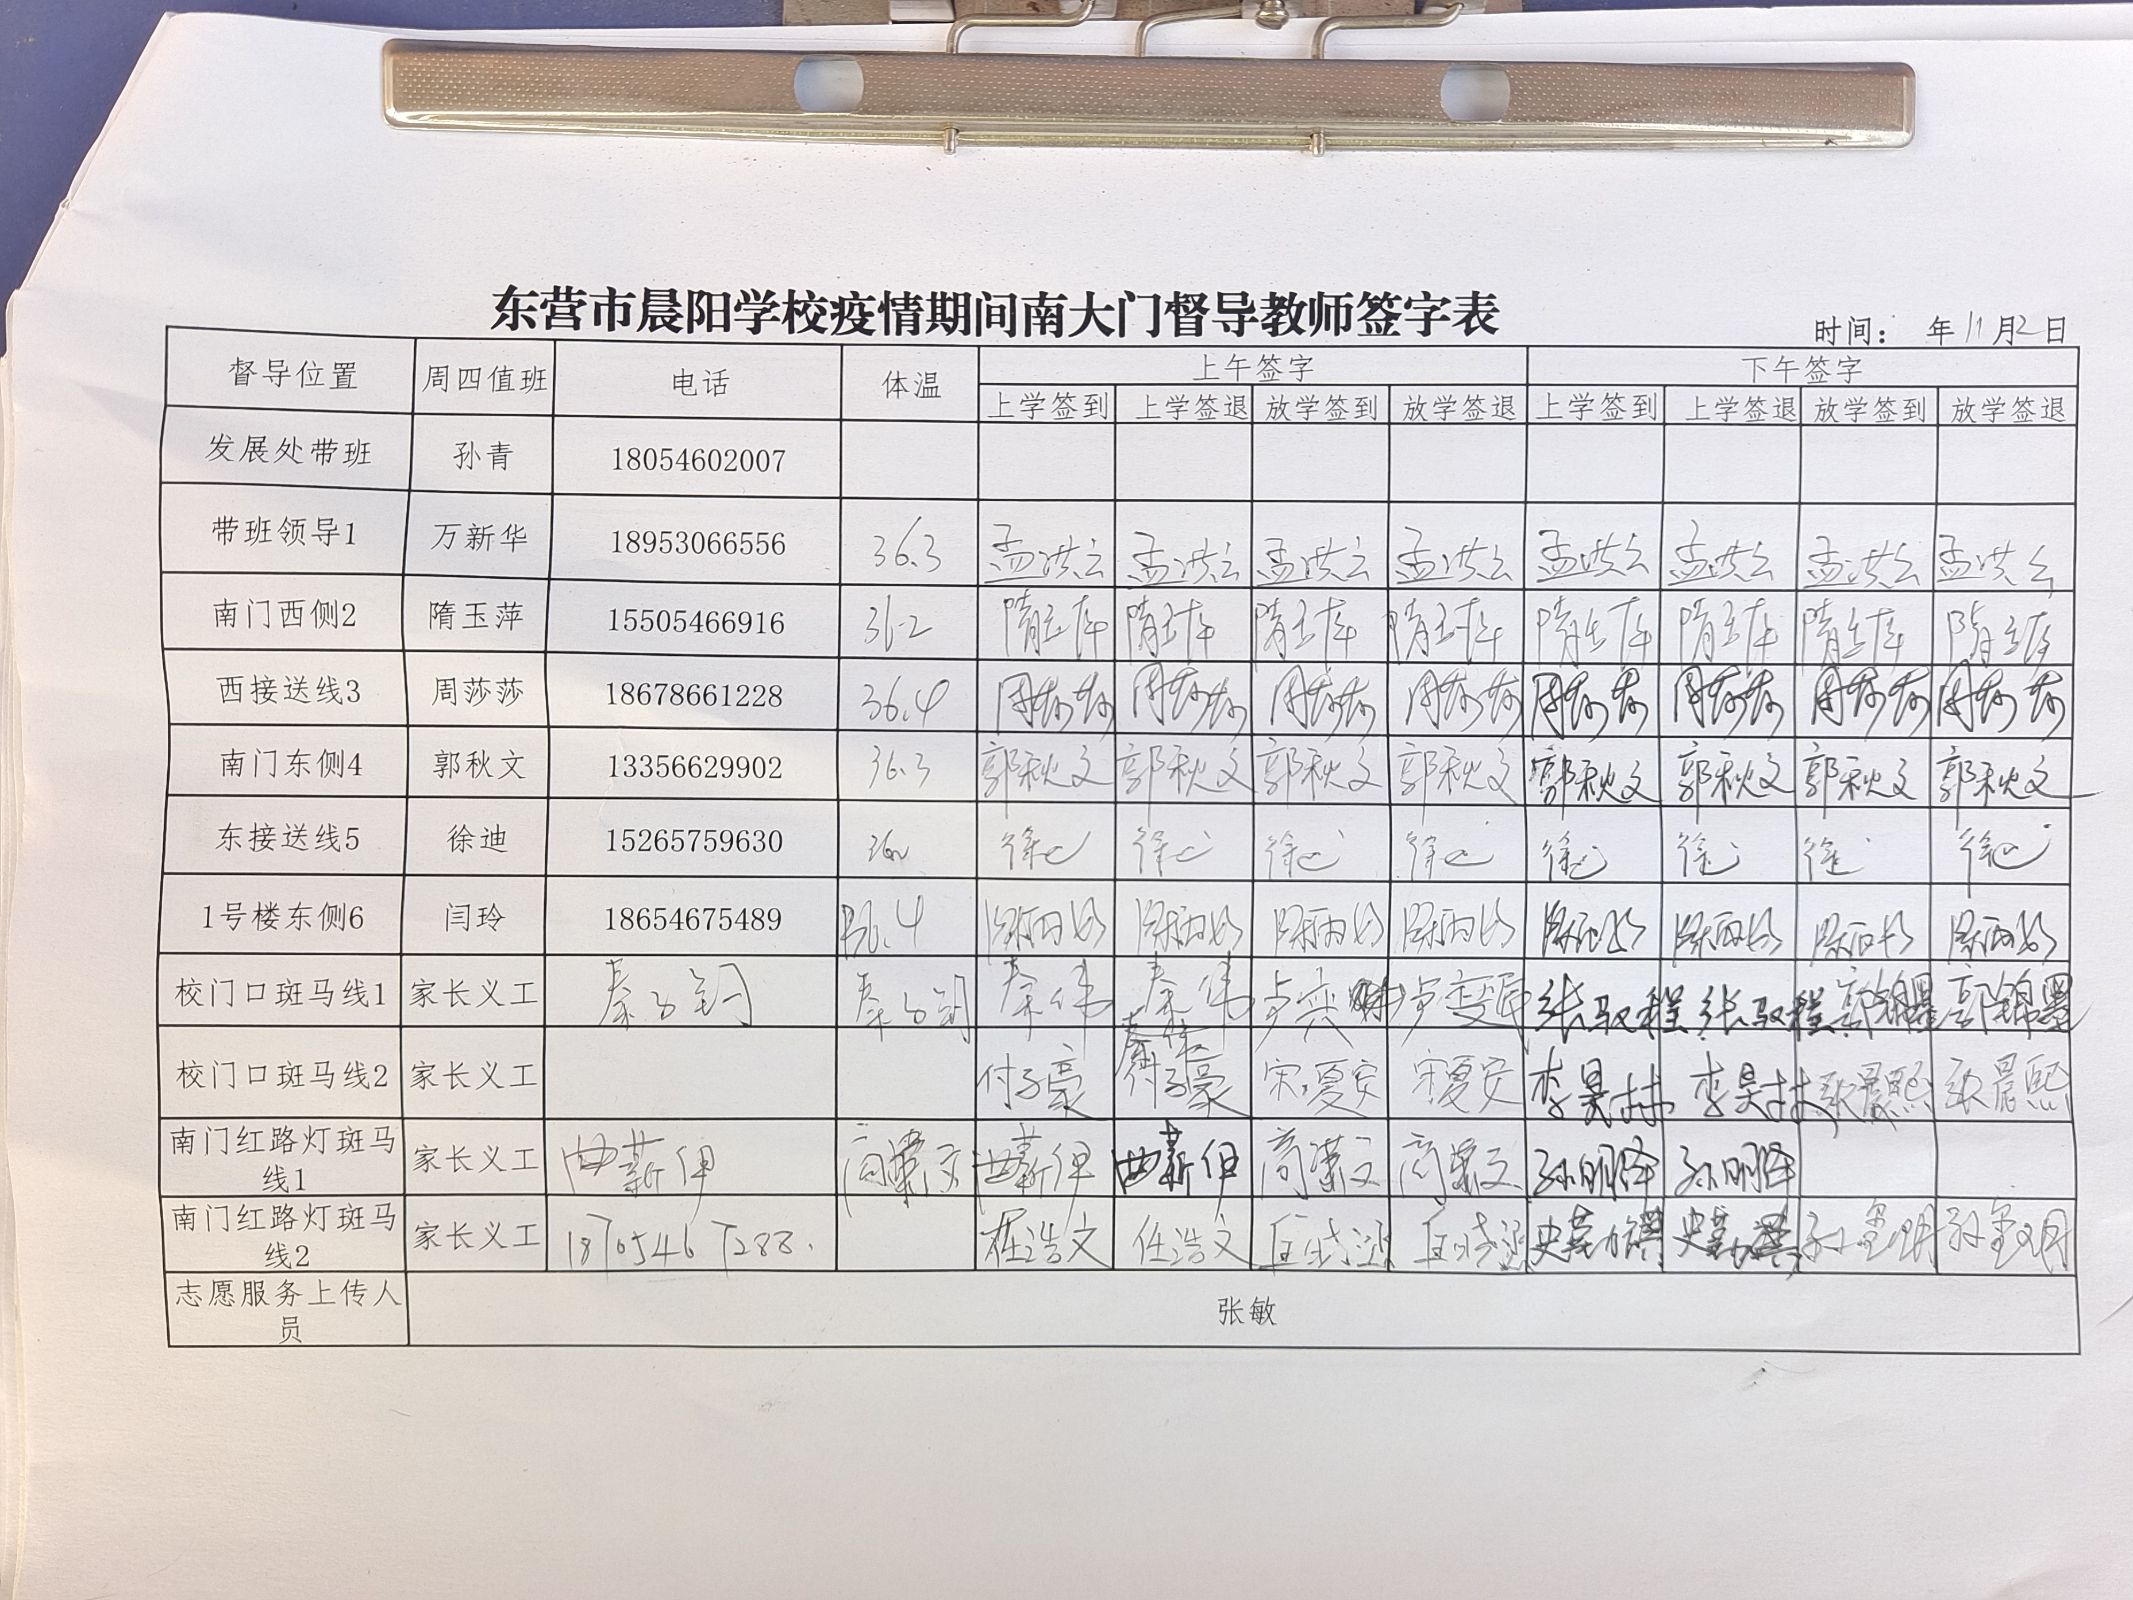 东营市晨阳学校疫情期间南大门督导教师签字表
时间： 年11月2日
督导位置 周四值班 电话 体温 上午签字 下午签字
上学签到 上学签退 放学签到 放学签退 上学签到 上学签退 放学签到 放学签退
发展处带班 孙青 18054602007
带班领导1 万新华 18953066556 36.3 孟洪云 孟洪云 孟洪云 孟洪云 孟洪云 孟洪云 孟洪云 孟洪云
南门西侧2 隋玉萍 15505466916 36.2 隋玉萍 隋玉萍 隋玉萍 隋玉萍 隋玉萍 隋玉萍 隋玉萍 隋玉萍
西接送线3 周莎莎 18678661228 36.4 周莎莎 周莎莎 周莎莎 周莎莎 周莎莎 周莎莎 周莎莎 周莎莎
南门东侧4 郭秋文 13356629902 36.3 郭秋文 郭秋文 郭秋文 郭秋文 郭秋文 郭秋文 郭秋文 郭秋文
东接送线5 徐迪 15265759630 徐迪 徐迪 徐迪 徐迪 徐迪 徐迪 徐迪 徐迪
1号楼东侧6 闫玲 18654675489 36.4
校门口斑马线1 家长义工 秦伟 秦伟 张驭程 张驭程 郭锦墨 郭锦墨
校门口斑马线2 家长义工 付子豪 付子豪 宋夏安 宋夏安 李昊林 李昊林 张晨熙 张晨熙
南门红路灯斑马
线1 家长义工 曲薪伊 曲薪伊 曲薪伊 孙明泽 孙明泽
南门红路灯斑马
线2 家长义工 任浩文 任浩文
志愿服务上传人
员 张敏